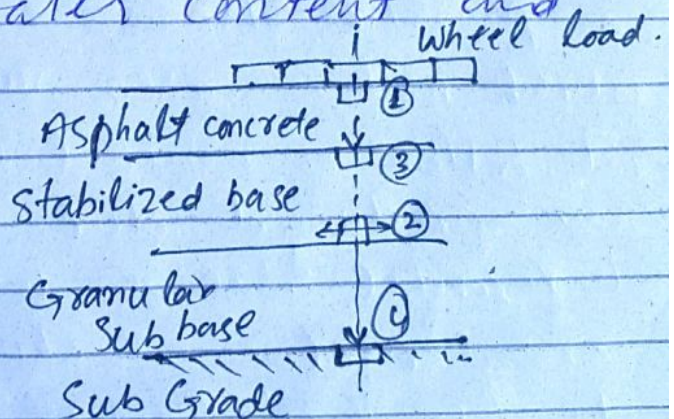 ater content and
Wheel load.
①
Asphalt concrete
③
Stabilized base
②
Granular
Sub base
①
Sub Grade